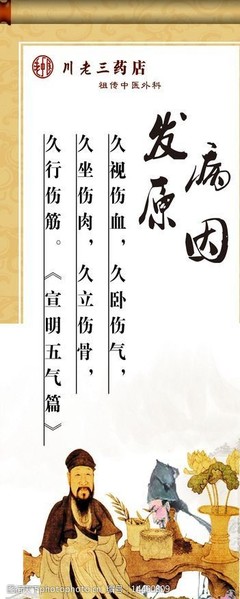 川老三药店
祖传中医外科
发病原因
久视伤血，久卧伤气，
久坐伤肉，久立伤骨，
久行伤筋。《宣明五气篇》